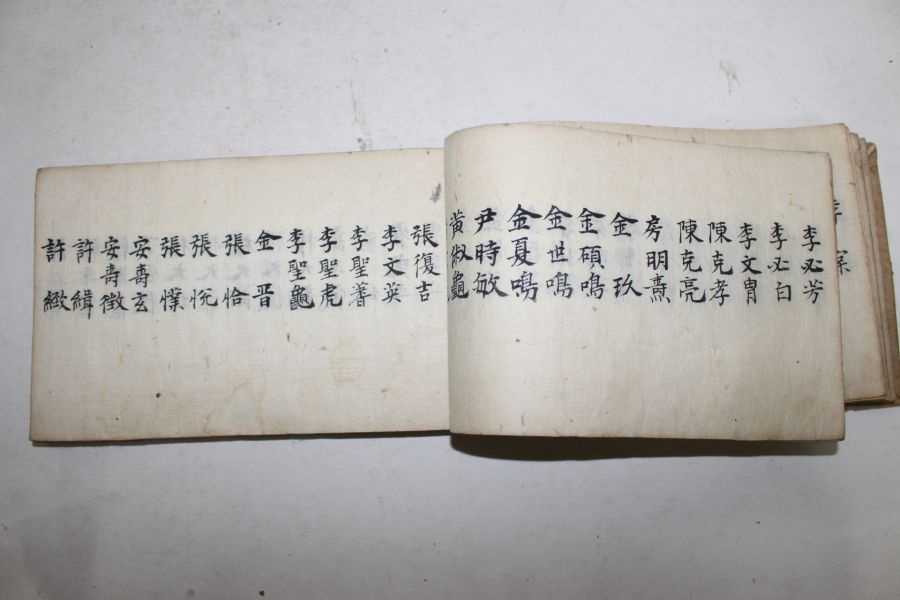 李必芳
李必白
李文胄
陳克孝
陳克亮
房明熹
金玖
金碩鳴
金世鳴
金夏鳴
尹時敏
黃俶龜
張復吉
李文英
李聖蓍
李聖虎
李聖龜
金晋
張恰
張悅
張㦨
安壽玄
安壽徵
許緝
許緻
案